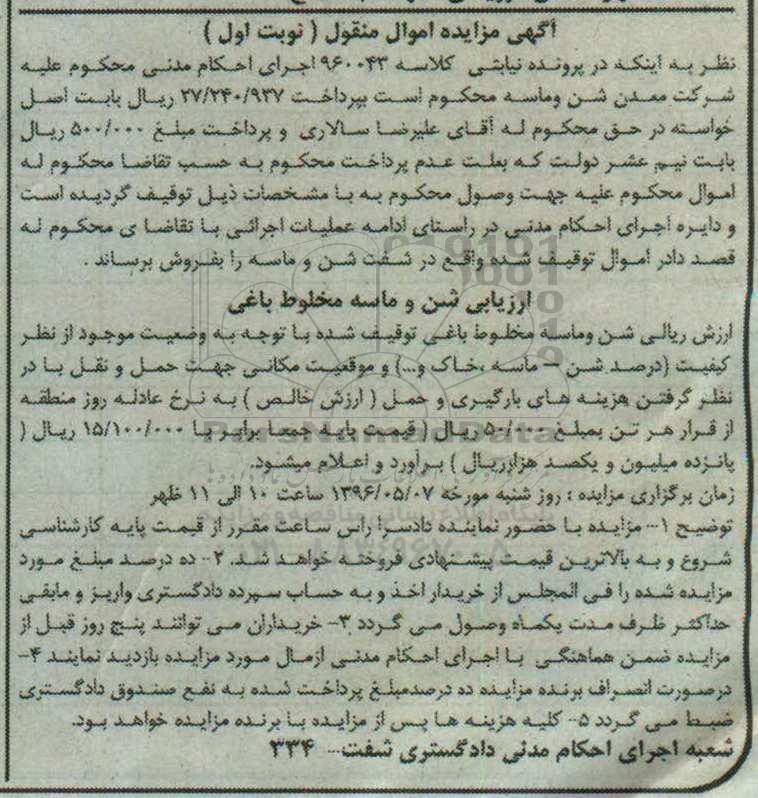 آگهی مزایده اموال منقول ( نوبت اول )
نظر به اینکه در پرونده نیابتی کلاسه ۹۶۰۰۴۳ اجرای احکام مدنی محکوم علیه
شرکت معدن شن وماسه محکوم است بپرداخت ۲۷/۲۴۰/۹۳۷ ریال بابت اصل
خواسته در حق محکوم له آقای علیرضا سالاری و پرداخت مبلغ ۵۰۰/۰۰۰ ریال
بابت نیم عشر دولت که بعلت عدم پرداخت محکوم به حسب تقاضا محکوم له
اموال محکوم علیه جهت وصول محکوم به با مشخصات ذیل توقیف گردیده است
و دایره اجرای احکام مدنی در راستای ادامه عملیات اجرائی با تقاضا ی محکوم له
قصد دادر اموال توقیف شده واقع در شفت شن و ماسه را بفروش برساند .
ارزیابی شن و ماسه مخلوط باغی
ارزش ریالی شن وماسه مخلوط باغی توقیف شده با توجه به وضعیت موجود از نظر
کیفیت (درصد شن – ماسه ،خاک و...) و موقعیت مکانی جهت حمل و نقل با در
نظر گرفتن هزینه های بارگیری و حمل ( ارزش خالص ) به نرخ عادله روز منطقه
از قرار هر تن بمبلغ ۵۰/۰۰۰ ریال ( قیمت پایه جمعا برابر با ۱۵/۱۰۰/۰۰۰ ریال (
پانزده میلیون و یکصد هزارریال ) برآورد و اعلام میشود.
زمان برگزاری مزایده : روز شنبه مورخه ۱۳۹۶/۰۵/۰۷ ساعت ۱۰ الی ۱۱ ظهر
توضیح ۱-- مزایده با حضور نماینده دادسرا راس ساعت مقرر از قیمت پایه کارشناسی
شروع و به بالاترین قیمت پیشنهادی فروخته خواهد شد. ۲- ده درصد مبلغ مورد
مزایده شده را فی المجلس از خریدار اخذ و به حساب سپرده دادگستری واریز و مابقی
حداکثر ظرف مدت یکماه وصول می گردد ۳- خریداران می توانند پنج روز قبل از
مزایده ضمن هماهنگی با اجرای احکام مدنی ازمال مورد مزایده بازدید نمایند ۴-
درصورت انصراف برنده مزایده ده درصدمبلغ پرداخت شده به نفع صندوق دادگستری
ضبط می گردد ۵- کلیه هزینه ها پس از مزایده با برنده مزایده خواهد بود.
شعبه اجرای احکام مدنی دادگستری شفت-- ۳۳۴
ParsNamadData